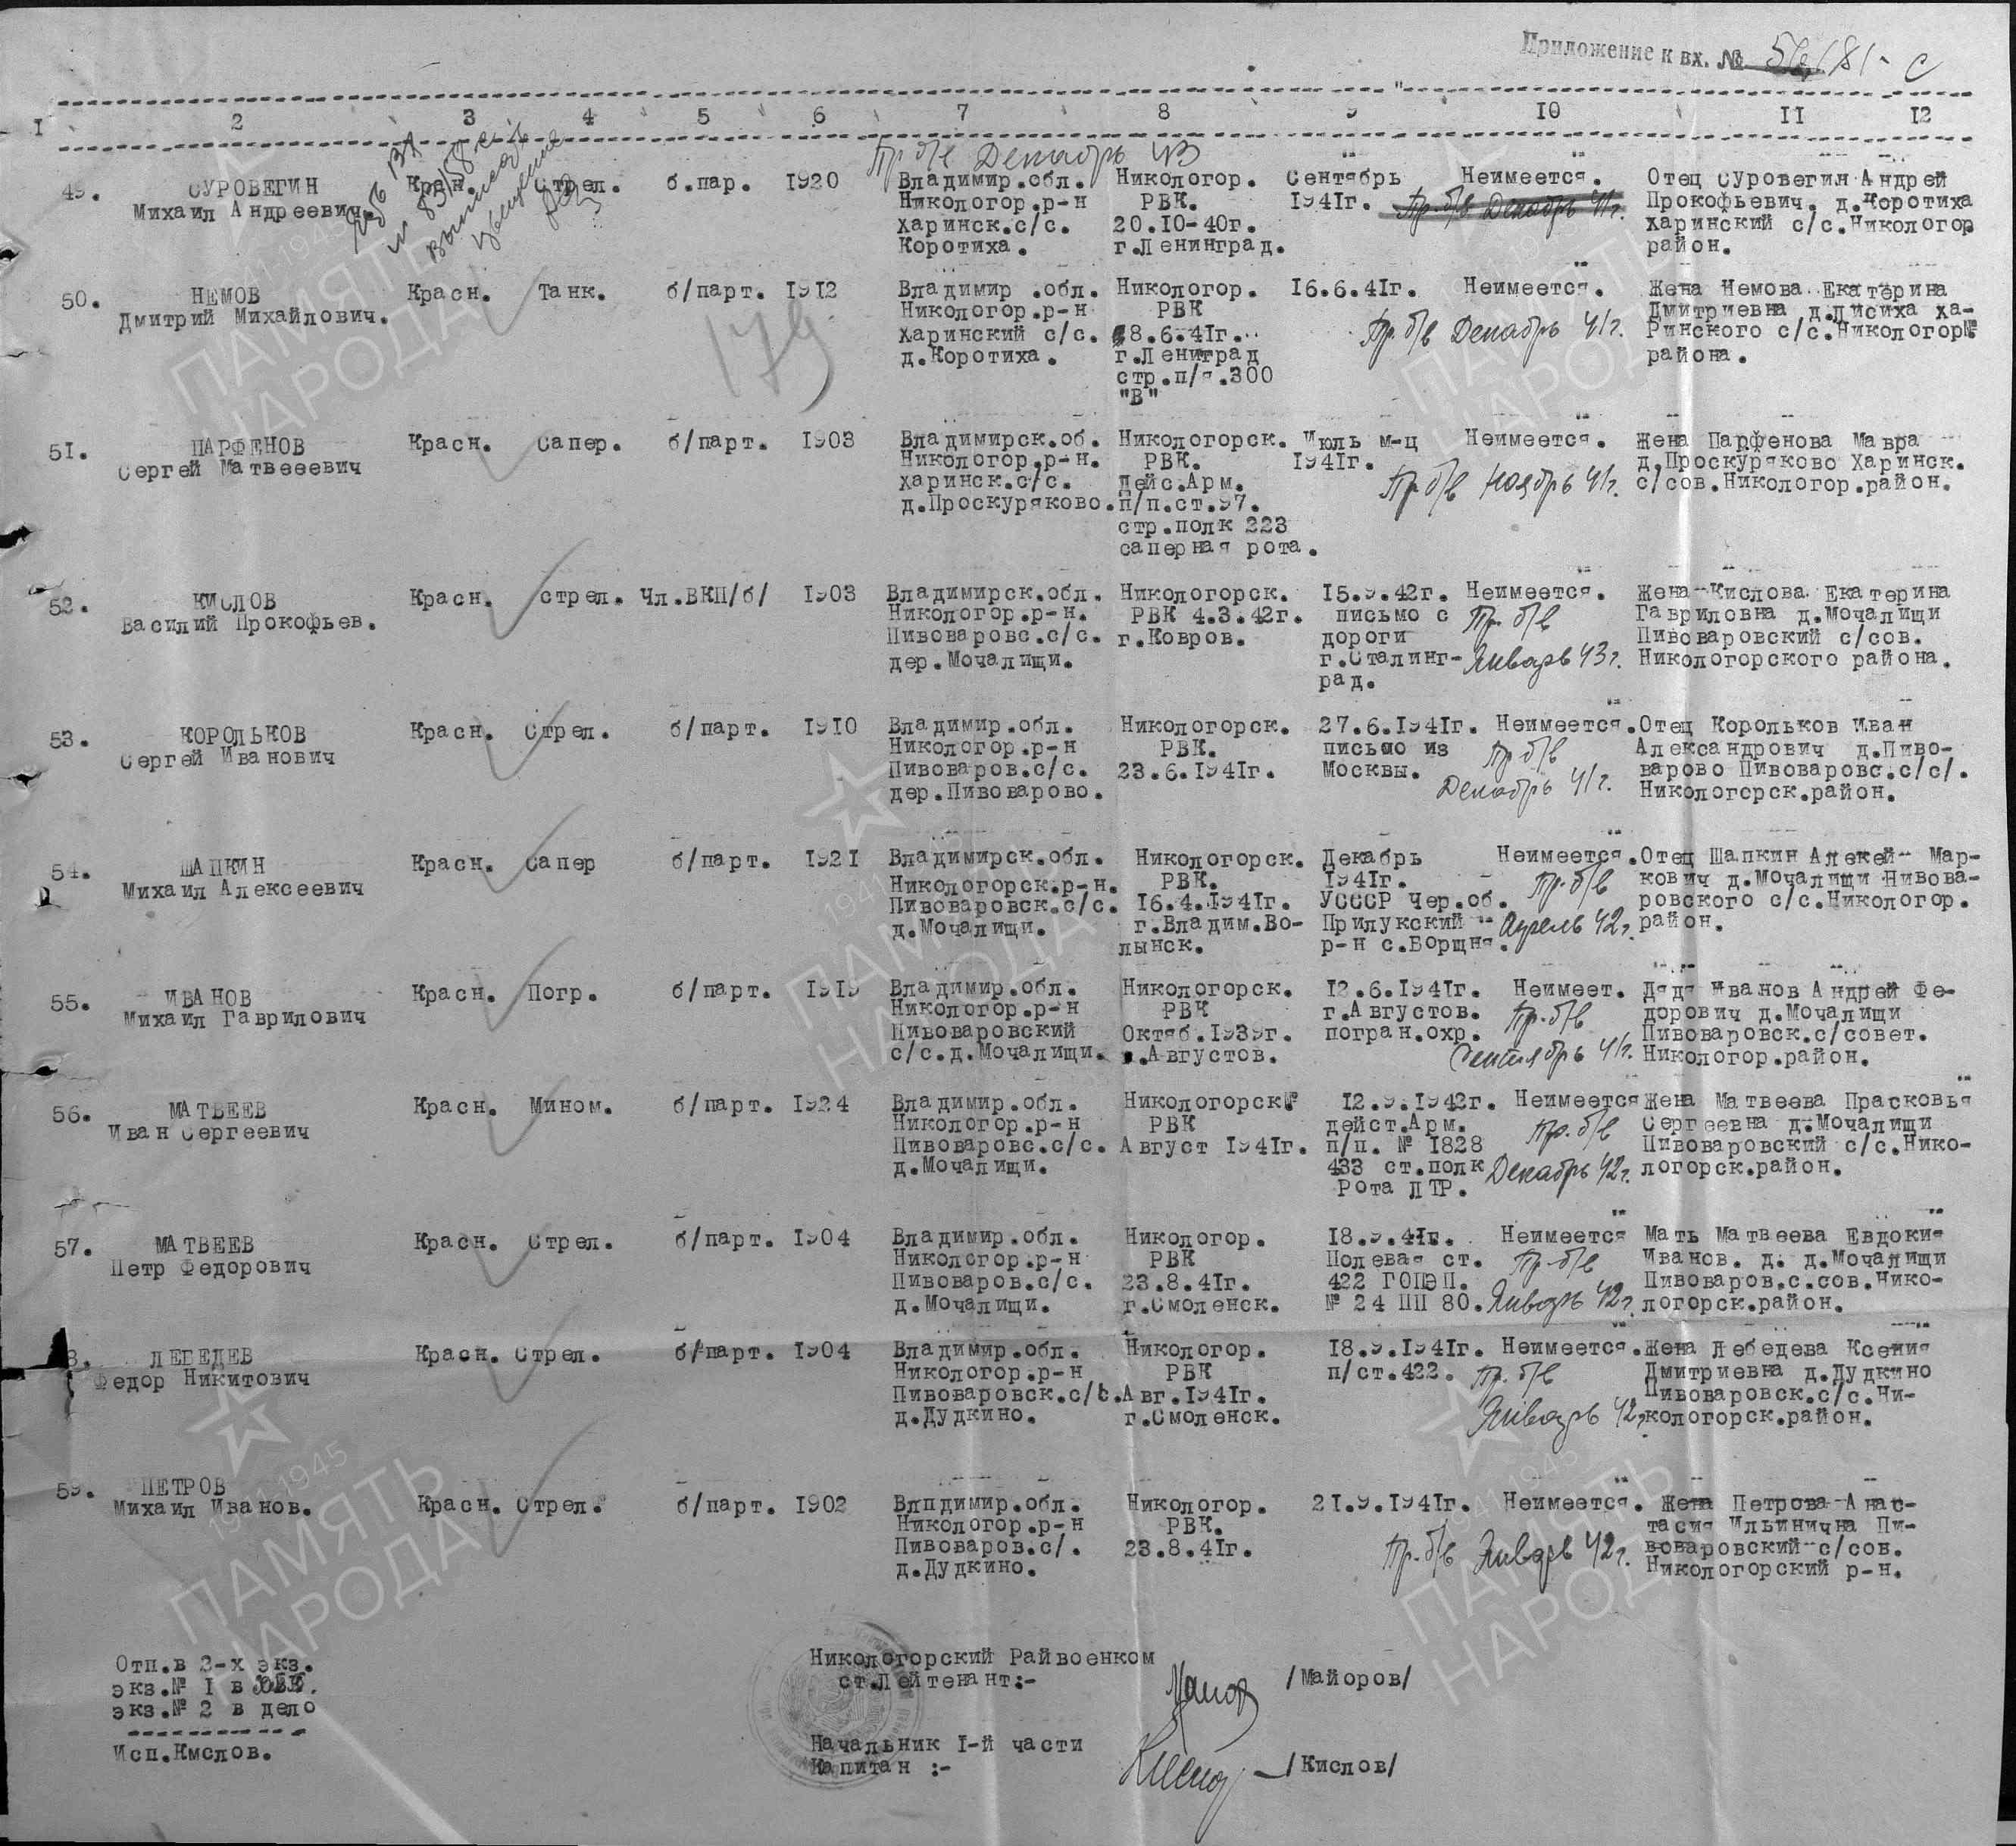 Приложение к вх. №
I 2 3 4 5 6 7 8 9 10 11 12
Пр б/в Декабрь
49. СУРОВЕГИН Красн. Стрел. б.пар. 1920 Владимир.обл. Никологор. Сентябрь Неимеется. Отец Суровегин Андрей
Михаил Андреевич. Никологор.р-н РВК. 1941г. Пр. б/в Декабрь 41г. Прокофьевич. д.Коротиха
харинск.с/с. 20.10-40г. харинский с/с.Никологор
Коротиха. г.Ленинград. район.
50. НЕМОВ Красн. Танк. б/парт. 1912 Владимир .обл. Никологор. 16.6.41г. Неимеется. Жена Немова Екатерина
Дмитрий Михайлович. Никологор.р-н РВК Дмитриевна д.Лисиха ха-
179 Харинский с/с. 8.6.41г. Пр. б/в Декабрь 41г. Ринского с/с.Никологор№
д.Коротиха. г.Лениград района.
стр.п/я.300
"В"
51. ПАРФЕНОВ Красн. Сапер. б/парт. 1903 Владимирск.об. Никологорск. Июль м-ц Неимеется. Жена Парфенова Мавра
Сергей Матвееевич Никологор.р-н. РВК. 1941г. д.Проскуряково Харинск.
харинск.с/с. Дейс.Арм. Пр. б/в Ноябрь 41г. с/сов.Никологор.район.
д.Проскуряково. п/п.ст.97.
стр.полк 223
саперная рота.
52. КИСЛОВ Красн. стрел. Чл.ВКП/б/ 1903 Владимирск.обл. Никологорск. 15.9.42г. Неимеется. Жена Кислова Екатерина
Василий Прокофьев. Никологор.р-н. РВК 4.3.42г. письмо с Пр. б/в Гавриловна д.Мочалищи
Пивоваровс.с/с. г.Ковров. дороги Пивоваровский с/сов.
дер.Мочалищи. г.Сталинг- Январь 43г. Никологорского района.
рад.
53. КОРОЛЬКОВ Красн. Стрел. б/парт. 1910 Владимир.обл. Никологорск. 27.6.1941г. Неимеется. Отец Корольков Иван
Сергей Иванович Никологор.р-н РВК. письмо из Пр б/в Александрович д.Пиво-
Пивоваров.с/с. 23.6.1941г. Москвы. варово Пивоваровс.с/с/.
дер.Пивоварово. Декабрь 41г. Никологорск.район.
54. ШАПКИН Красн. Сапер б/парт. 1921 Владимирск.обл. Никологорск. Декабрь Неимеется. Отец Шапкин Алекей Мар-
Михаил Алексеевич Никологорск.р-н. РВК. 1941г. Пр. б/в кович д.Мочалищи Нивова-
Пивоваровск.с/с. 16.4.1941г. УСССР Чер.об. ровского с/с.Никологор.
д.Мочалищи. г.Владим.Во- Прилукский Апрель 42г. район.
лынск. р-н с.Борщня.
55. ИВАНОВ Красн. Погр. б/парт. 1919 Владимир.обл. Никологорск. 12.6.1941г. Неимеет. Дядя Иванов Андрей Фе-
Михаил Гаврилович Никологор.р-н РВК г.Августов. Пр. б/в дорович д.Мочалищи
Пивоваровский Октяб.1939г. погран.охр. Пивоваровск.с/совет.
с/с.д.Мочалищи. г.Августов. Сентябрь 41г. Никологор.район.
56. МАТВЕЕВ Красн. Мином. б/парт. 1924 Владимир.обл. Никологорск№ 12.9.1942г. Неимеется Жена Матвеева Прасковья
Иван Сергеевич Никологор.р-н РВК дейст.Арм. Пр. б/в Сергеевна д.Мочалищи
Пивоваровс.с/с. Август 1941г. п/п. № 1828 Пивоваровский с/с.Нико-
д.Мочалищи. 433 ст.полк Декабрь 42г. логорск.район.
Рота ПТР.
57. МАТВЕЕВ Красн. Стрел. б/парт. 1904 Владимир.обл. Никологор. 18.9.41г. Неимеется Мать Матвеева Евдокия
Петр Федорович Никологор.р-н РВК Полевая ст. Пр. б/в Иванов. д. д.Мочалищи
Пивоваров.с/с. 23.8.41г. 422 ГОПЭП. Пивоваров.с.сов.Нико-
д.Мочалищи. г.Смоленск. № 24 ПП 80. Январь 42г. логорск.район.
8. ЛЕБЕДЕВ Красн. Стрел. б/парт. 1904 Владимир.обл. Никологор. 18.9.1941г. Неимеется. Жена Лебедева Ксения
Федор Никитович Никологор.р-н РВК п/ст.422. Пр. б/в Дмитриевна д.Дудкино
Пивоваровск.с/с. Авг.1941г. Пивоваровск.с/с.Ни-
д.Дудкино. г.Смоленск. Январь 42г. кологорск.район.
59. ПЕТРОВ
Михаил Иванов. Красн. Стрел. б/парт. 1902 Влпдимир.обл. Никологор. 21.9.1941г. Неимеется. Жена Петрова Анас-
Никологор.р-н РВК. тасия Ильинична Пи-
Пивоваров.с/. 23.8.41г. Пр. б/в Январь 42г. воваровский с/сов.
д.Дудкино. Никологорский р-н.
Никологорский Райвоенком
ст.Лейтенант:- /Майоров/
Отп.в 2-х экз.
экз.№ 1 в
экз.№ 2 в дело
Исп.Кмслов.
Начальник 1-й части
Капитан :- /Кислов/
1941 1945
ПАМЯТЬ
НАРОДА